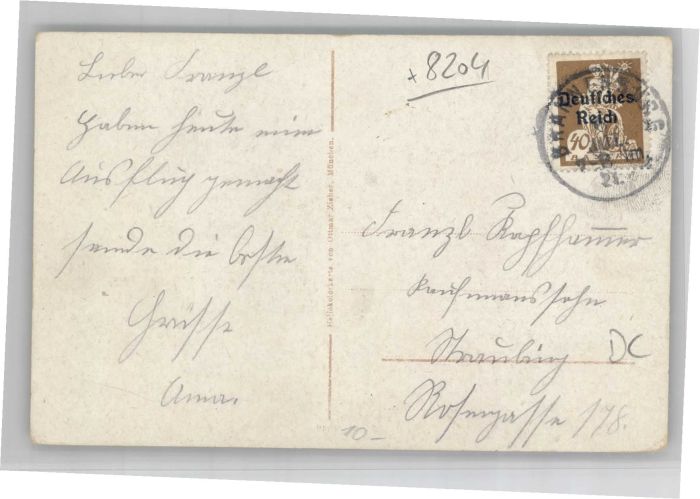 Lieber Franzl
Haben heute einen
Ausflug gemacht
sende die besten
Grüsse
Anna.
+8204
Deutsches
Reich
40
21
Franzl Kapfhammer
Kaufmannssohn
Straubing
DC
Rosengasse 178.
Hellokolorkarte von Ottmar Zieher, München.
10-